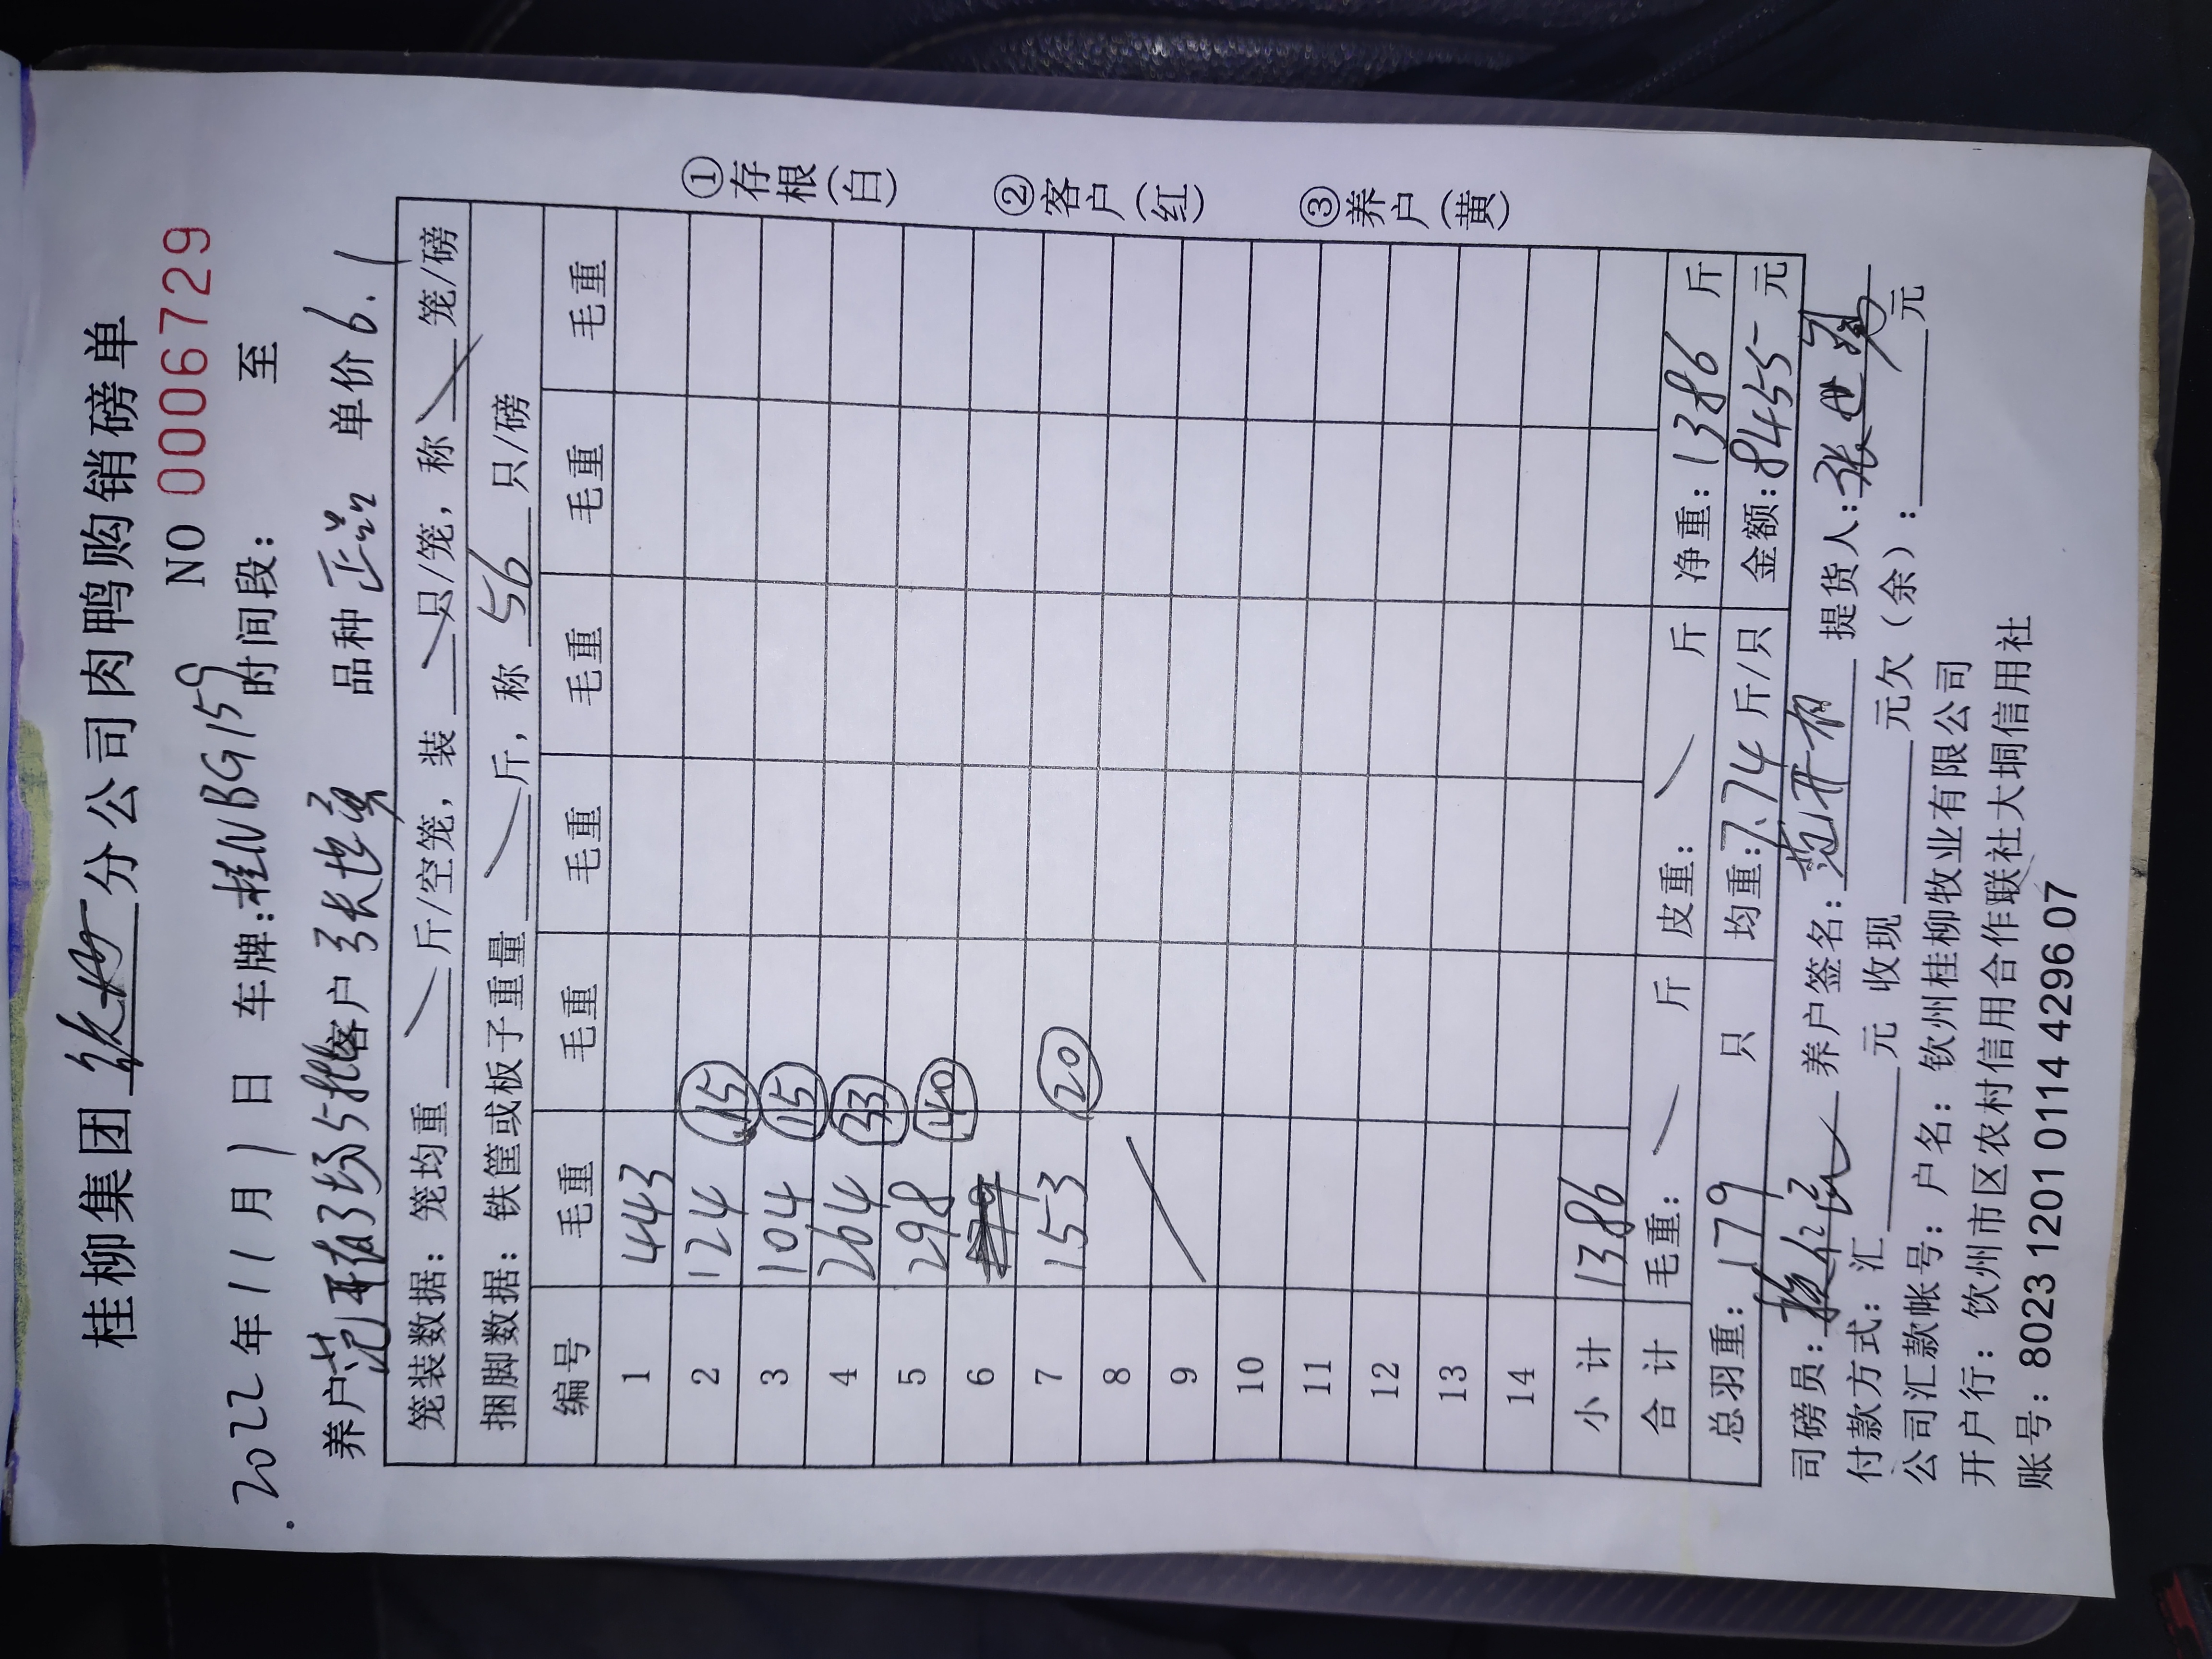 桂柳集团 钦州 分公司肉鸭购销磅单
NO 0006729
2022年11月1日 车牌:桂NBG159 时间段: 至
养户 范开有3场5批 客户 张世勇 品种 正品 单价 6.1
笼装数据: 笼均重 斤/空笼, 装 只/笼, 称 笼/磅
捆脚数据: 铁筐或板子重量 斤, 称 56 只/磅
编号 毛重 毛重 毛重 毛重 毛重 毛重
1 443
2 124 15
3 104 15
4 264 33
5 298 40
6
7 153 20
8
9
10
11
12
13
14
小计 1386
合计 毛重: 斤 皮重: 斤 净重: 1386 斤
总羽重: 179 只 均重: 7.74 斤/只 金额: 8455 元
司磅员: 养户签名: 范开有 提货人: 张世勇
付款方式: 汇 元 收现 元欠(余): 元
公司汇款帐号: 户名: 钦州桂柳牧业有限公司
开户行: 饮州市区农村信用合作联社大垌信用社
账号: 8023 1201 0114 4296 07
①存根(白)
②客户(红)
③养户(黄)